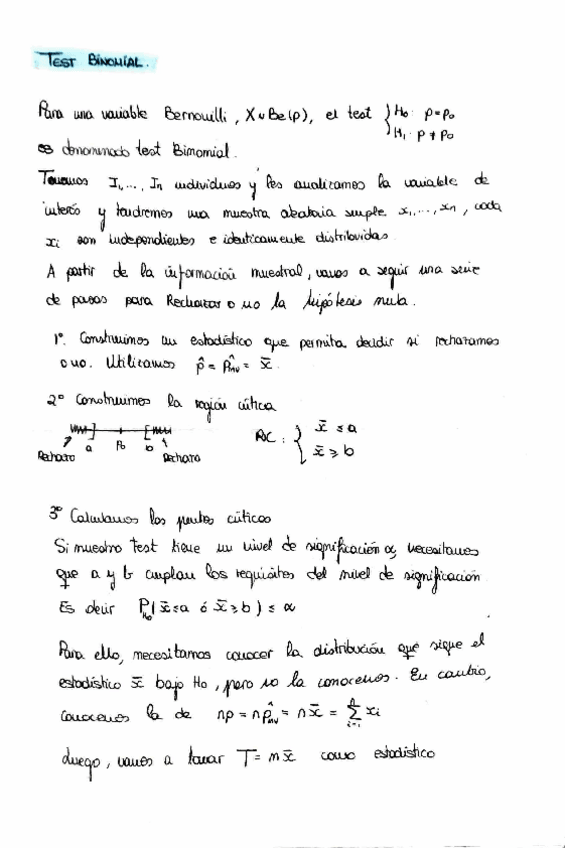 TEST BINOMIAL.
Para una variable Bernouilli, X ~ Be(p), el test { H₀: p = p₀
H₁: p ≠ p₀
es denominado test Binomial.
Tenemos I₁, ..., Iₙ individuos y les analizamos la variable de
interés y tendremos una muestra aleatoria simple x₁, ..., xₙ, cada
xᵢ son independientes e idénticamente distribuidas.
A partir de la información muestral, vamos a seguir una serie
de pasos para Rechazar o no la hipótesis nula.
1º. Construimos un estadístico que permita decidir si rechazamos
o no. Utilizamos p̂ = p̂ₘᵥ = x̄.
2º Construimos la región crítica
a p₀ b
Rechazo Rechazo
RC: { x̄ ≤ a
x̄ ≥ b
3º Calculamos los puntos críticos
Si nuestro test tiene un nivel de significación α, necesitamos
que a y b cumplan los requisitos del nivel de significación
Es decir P_H₀(x̄ ≤ a ó x̄ ≥ b) ≤ α
Para ello, necesitamos conocer la distribución que sigue el
estadístico x̄ bajo H₀, pero no la conocemos. En cambio,
conocemos la de np = np̂ₘᵥ = nx̄ = Σ xᵢ
Luego, vamos a tomar T = nx̄ como estadístico